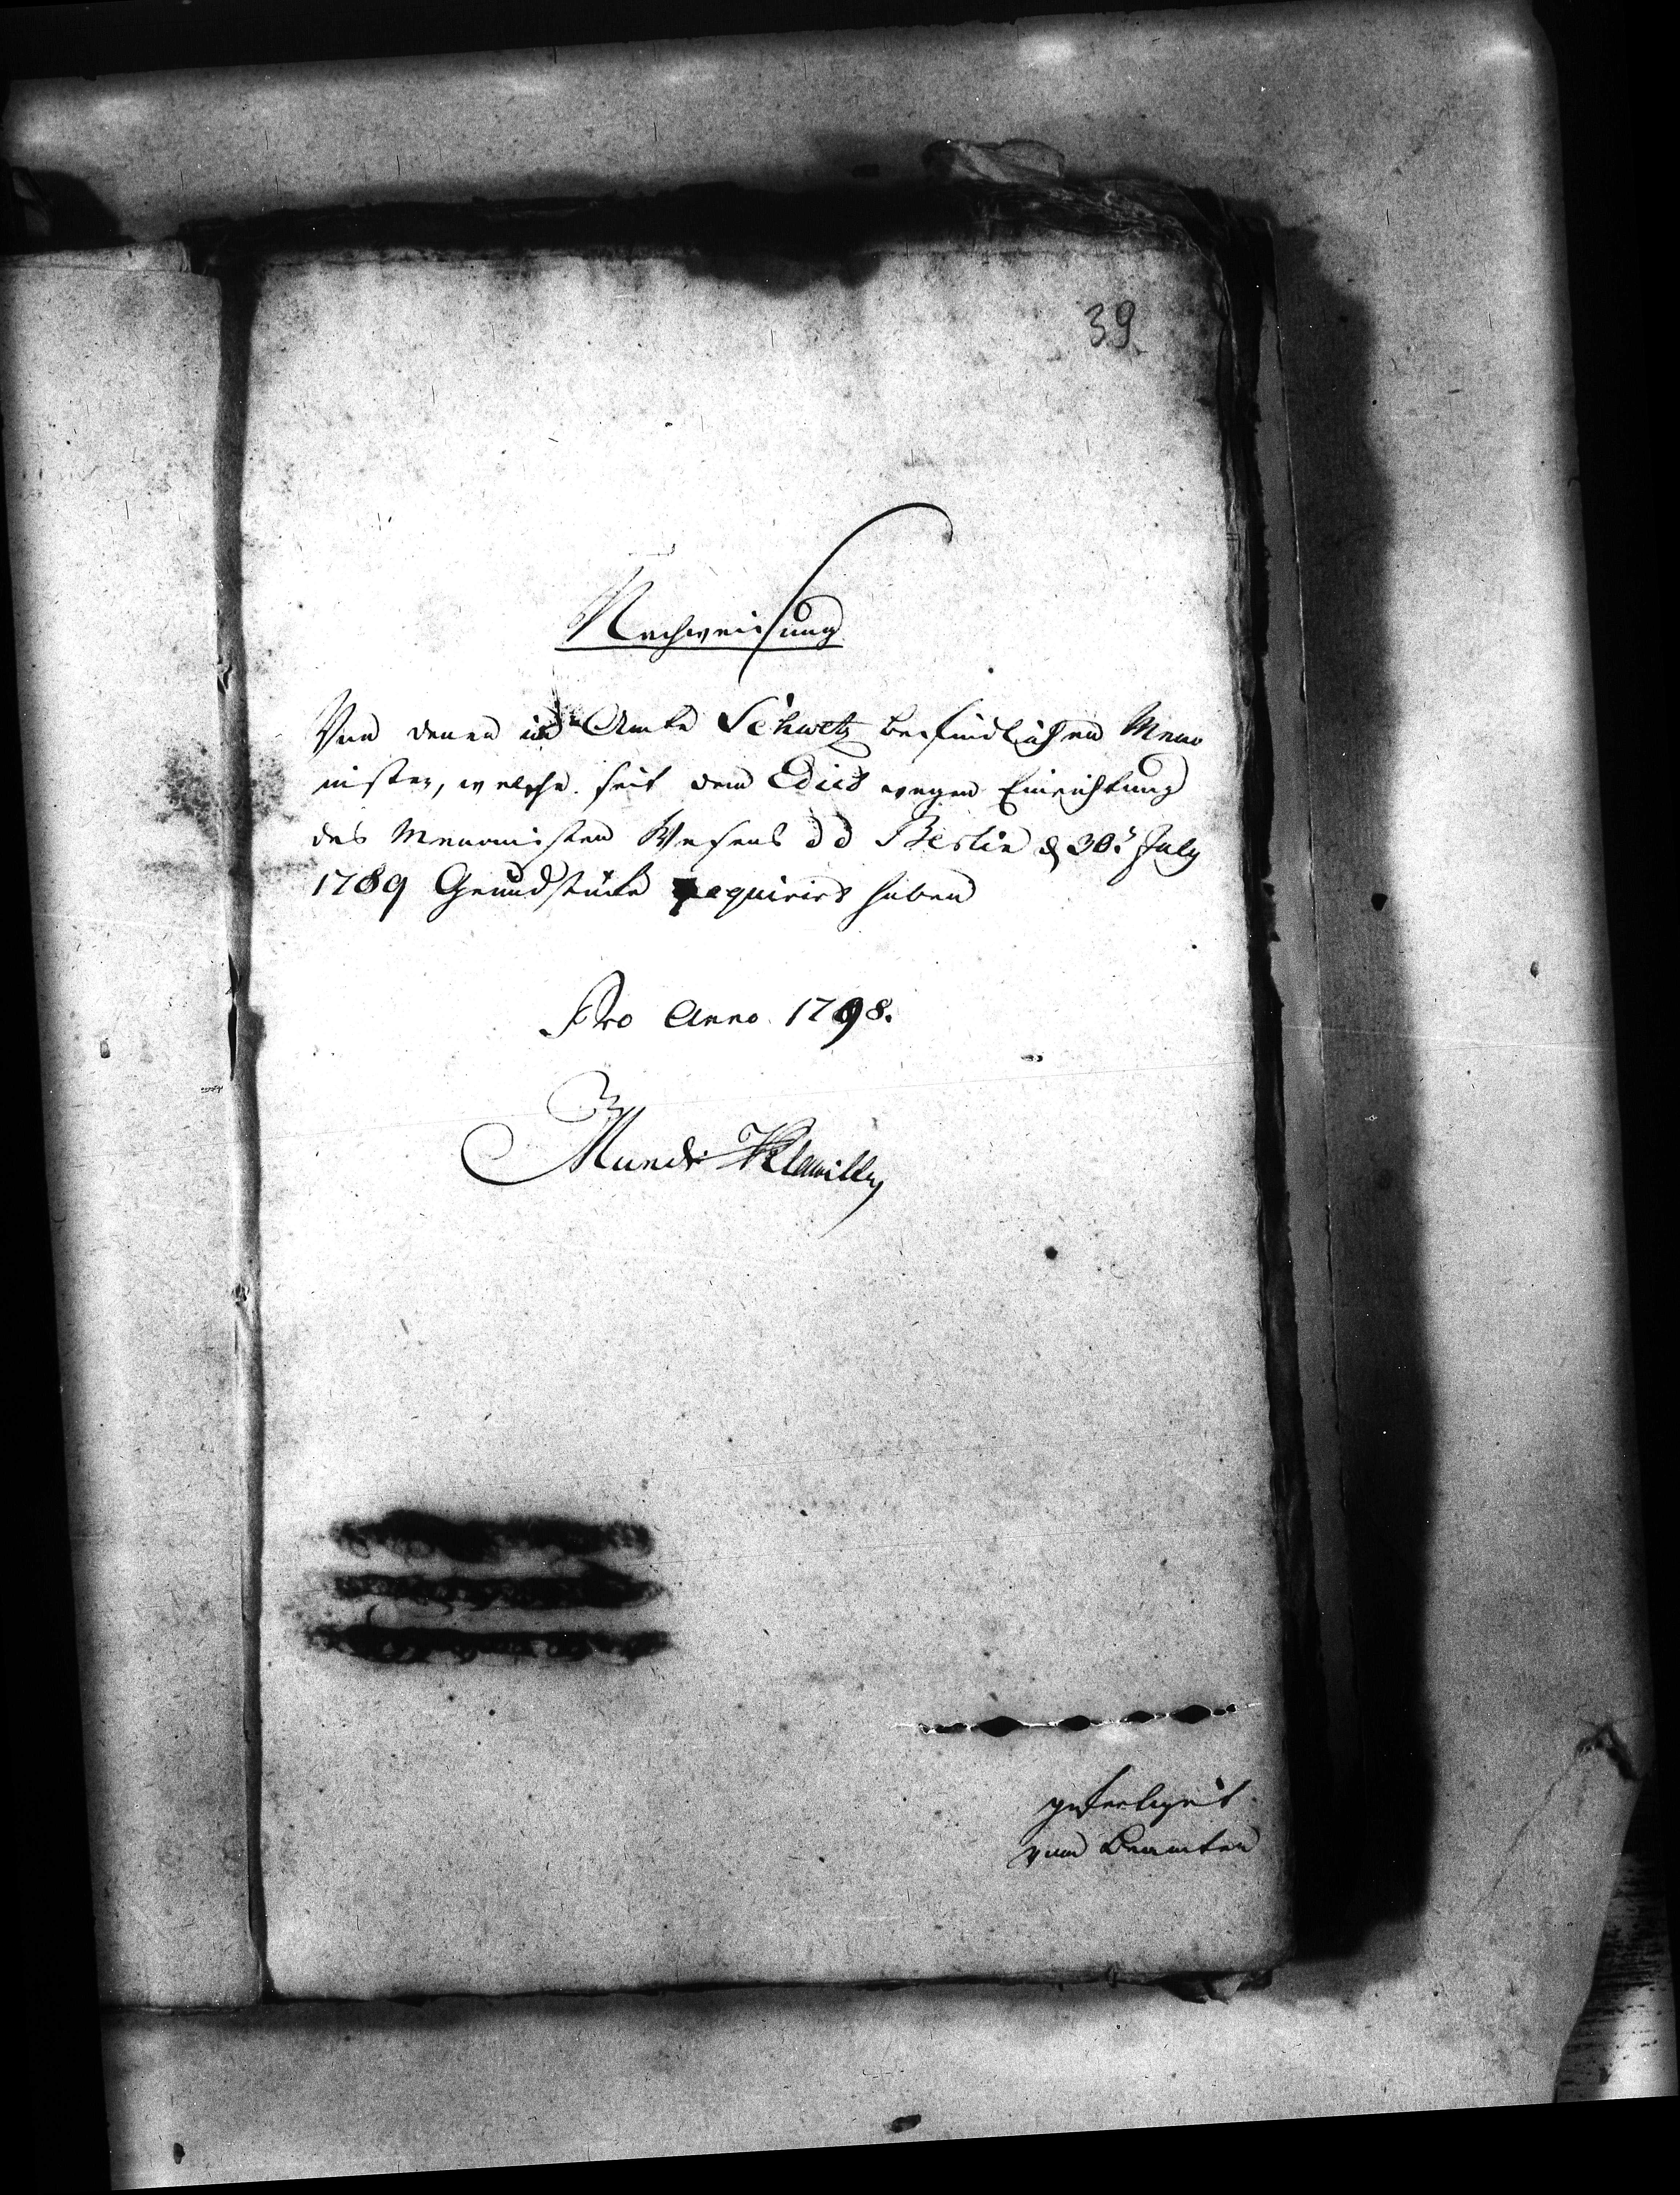 39.
Nachweisung
Von denen im Amte Schwetz befindlichen Meno
nisten, welche seit dem Edict wegen Einrichtung
des Menonisten Wesens d d Berlin d 30t July
1789 Grundstücke aquirirt haben
Pro Anno 1798.
gefertiget
vom Beamten